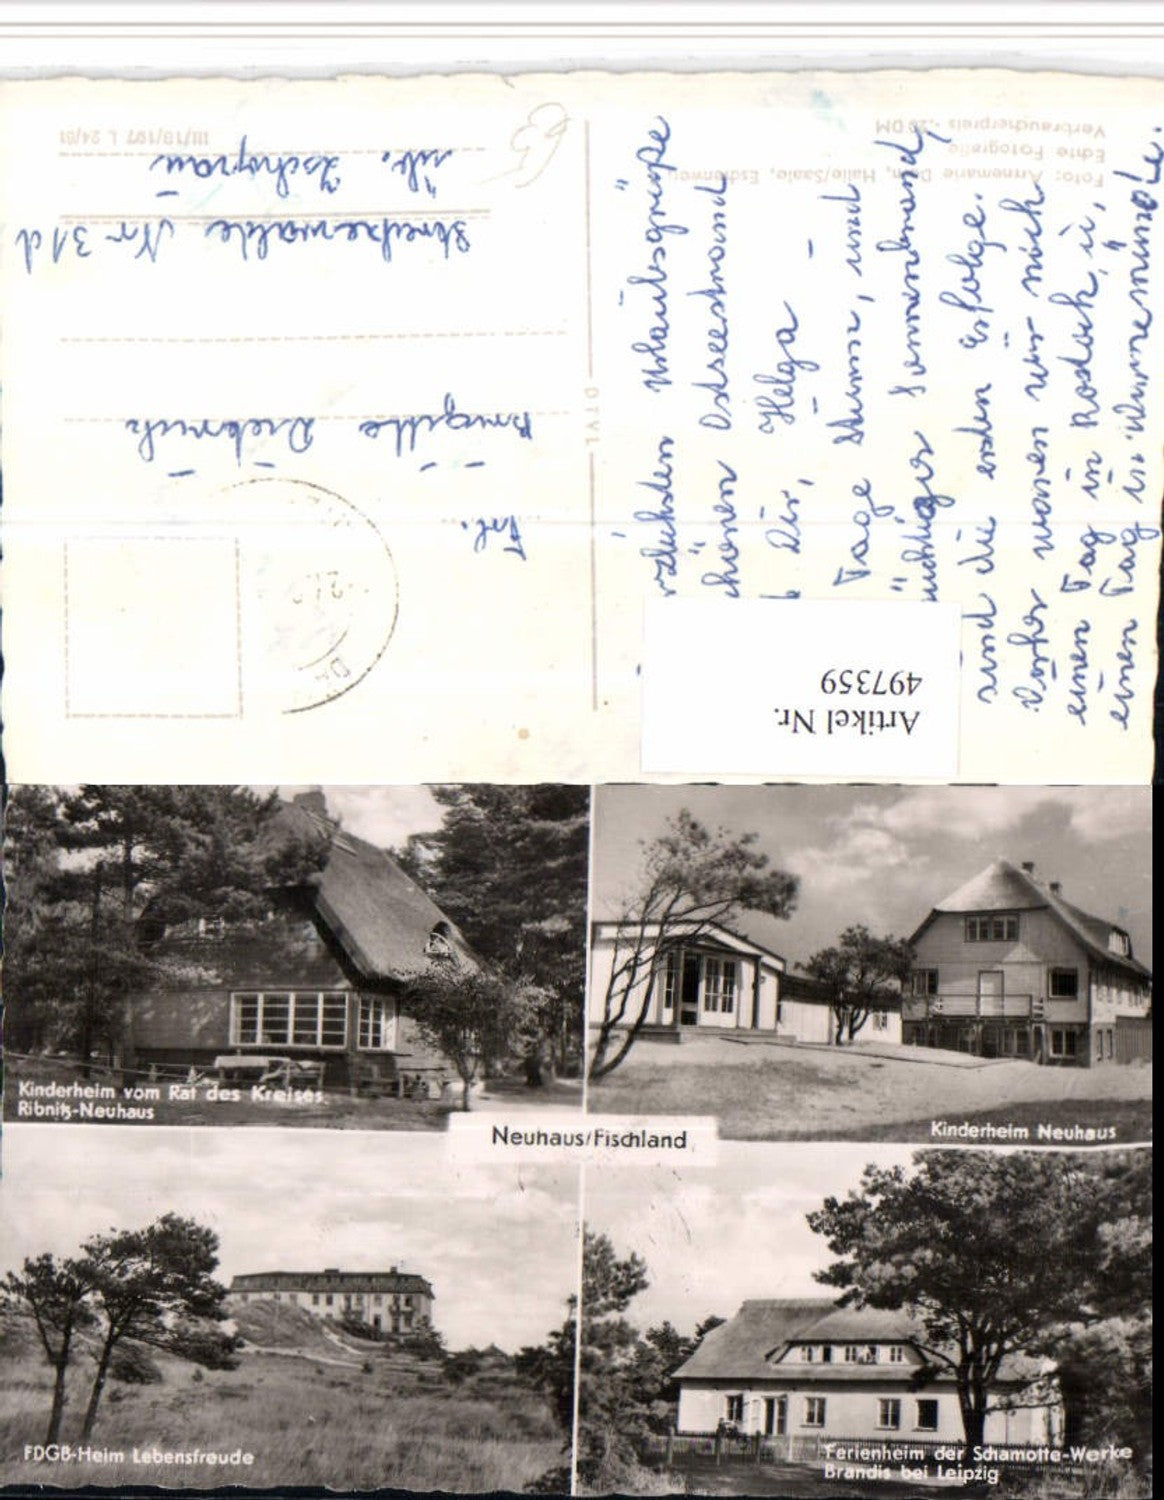 Foto: Annemarie Dorn, Halle/Saale, Eschenweg
Echte Fotografie
Verbraucherpreis -,20 DM
DTVL
Artikel Nr.
497359
herzlichsten Urlaubsgrüße
schönen Ostseestrand
Dir, Helga
Tage Sturm, und
tüchtiger Sonnenbrand,
sind die ersten Erfolge.
Vorher waren wir noch
einen Tag in Rostock, u,
einen Tag in Warnemünde.
Frl.
Brigitte Diebrich
Streckewalde Nr 31d
üb. Zschopau
III/18/197 L 24/61
63
Kinderheim vom Rat des Kreises
Ribnitz-Neuhaus
Kinderheim Neuhaus
Neuhaus/Fischland
FDGB-Heim Lebensfreude
Ferienheim der Schamotte-Werke
Brandis bei Leipzig